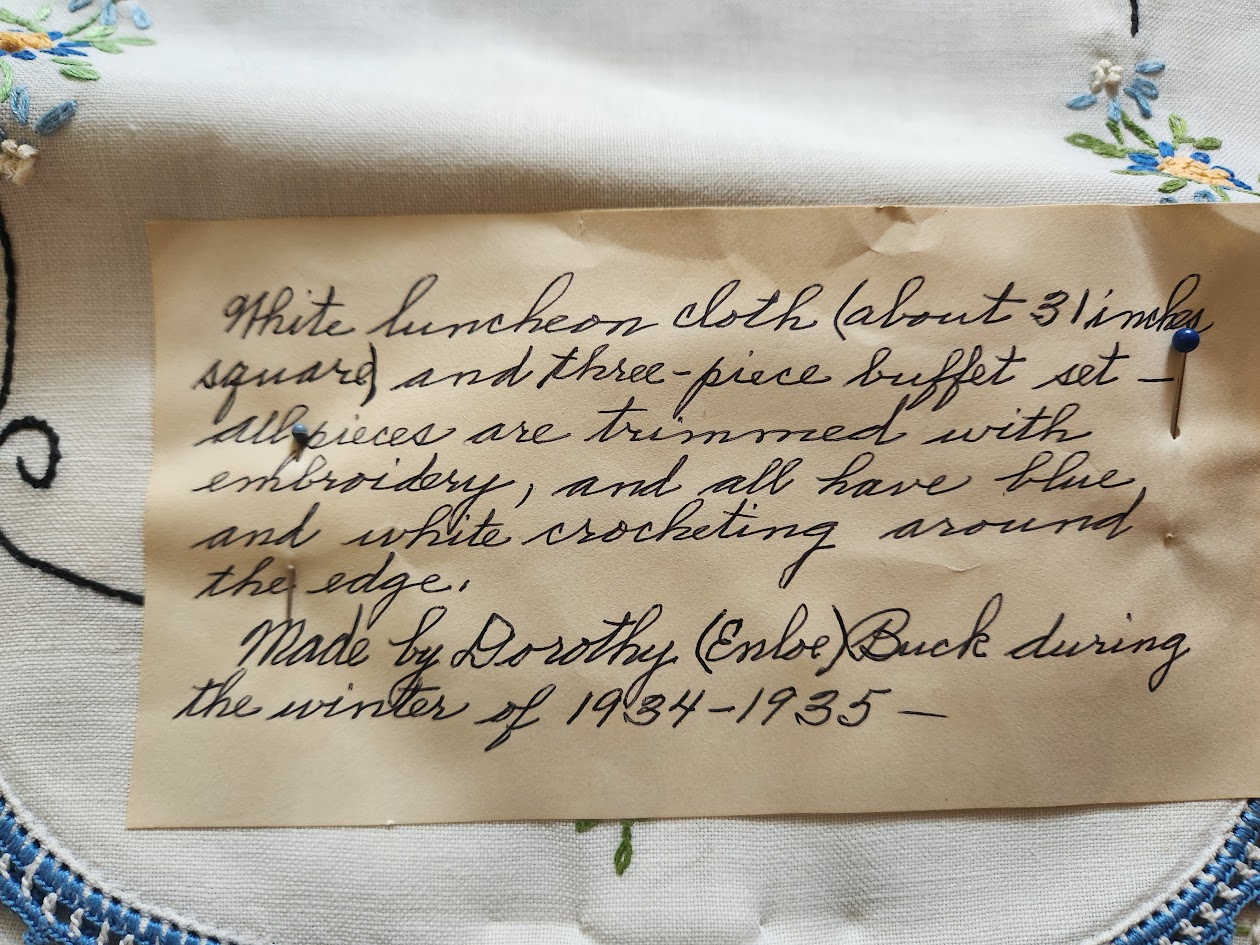 White luncheon cloth (about 31 inches
square) and three-piece buffet set –
all pieces are trimmed with
embroidery, and all have blue
and white crocheting around
the edge.
Made by Dorothy (Enloe) Buck during
the winter of 1934-1935 –